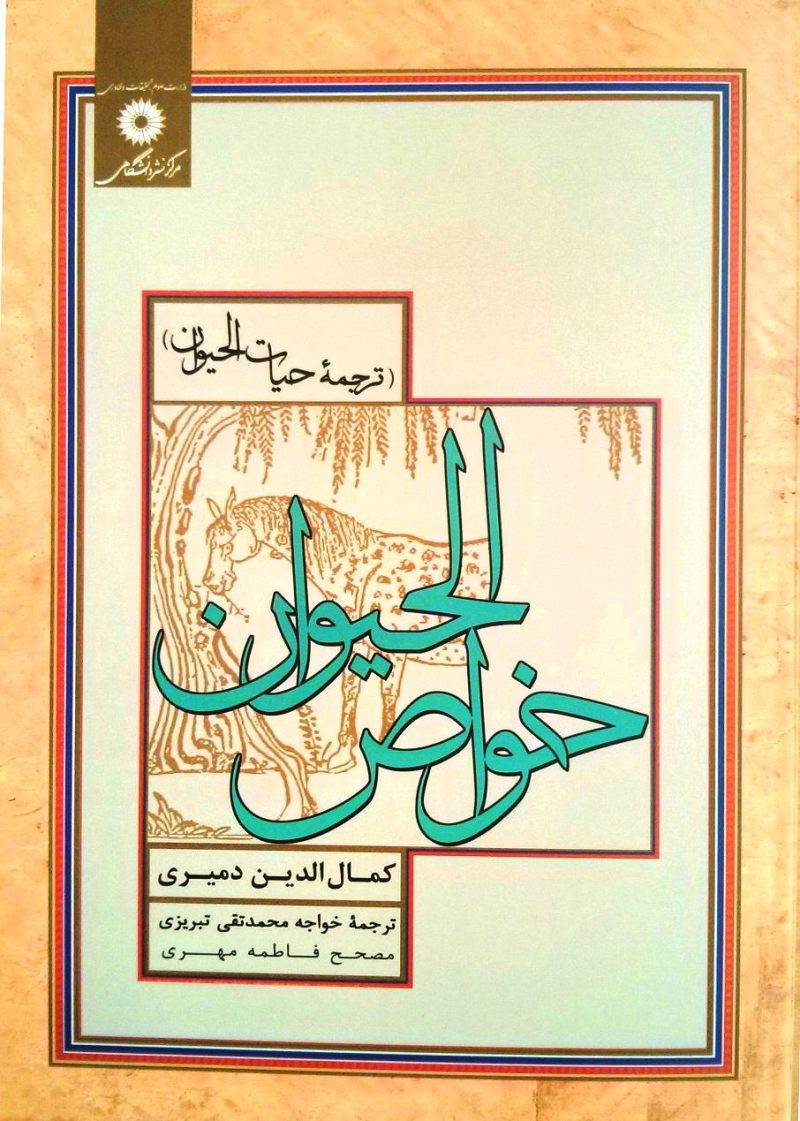 وزارت علوم، تحقیقات و فناوری
مرکز نشر دانشگاهی
(ترجمهٔ حیات الحیوان)
خواص الحیوان
کمال الدین دمیری
ترجمهٔ خواجه محمدتقی تبریزی
مصحح فاطمه مهری